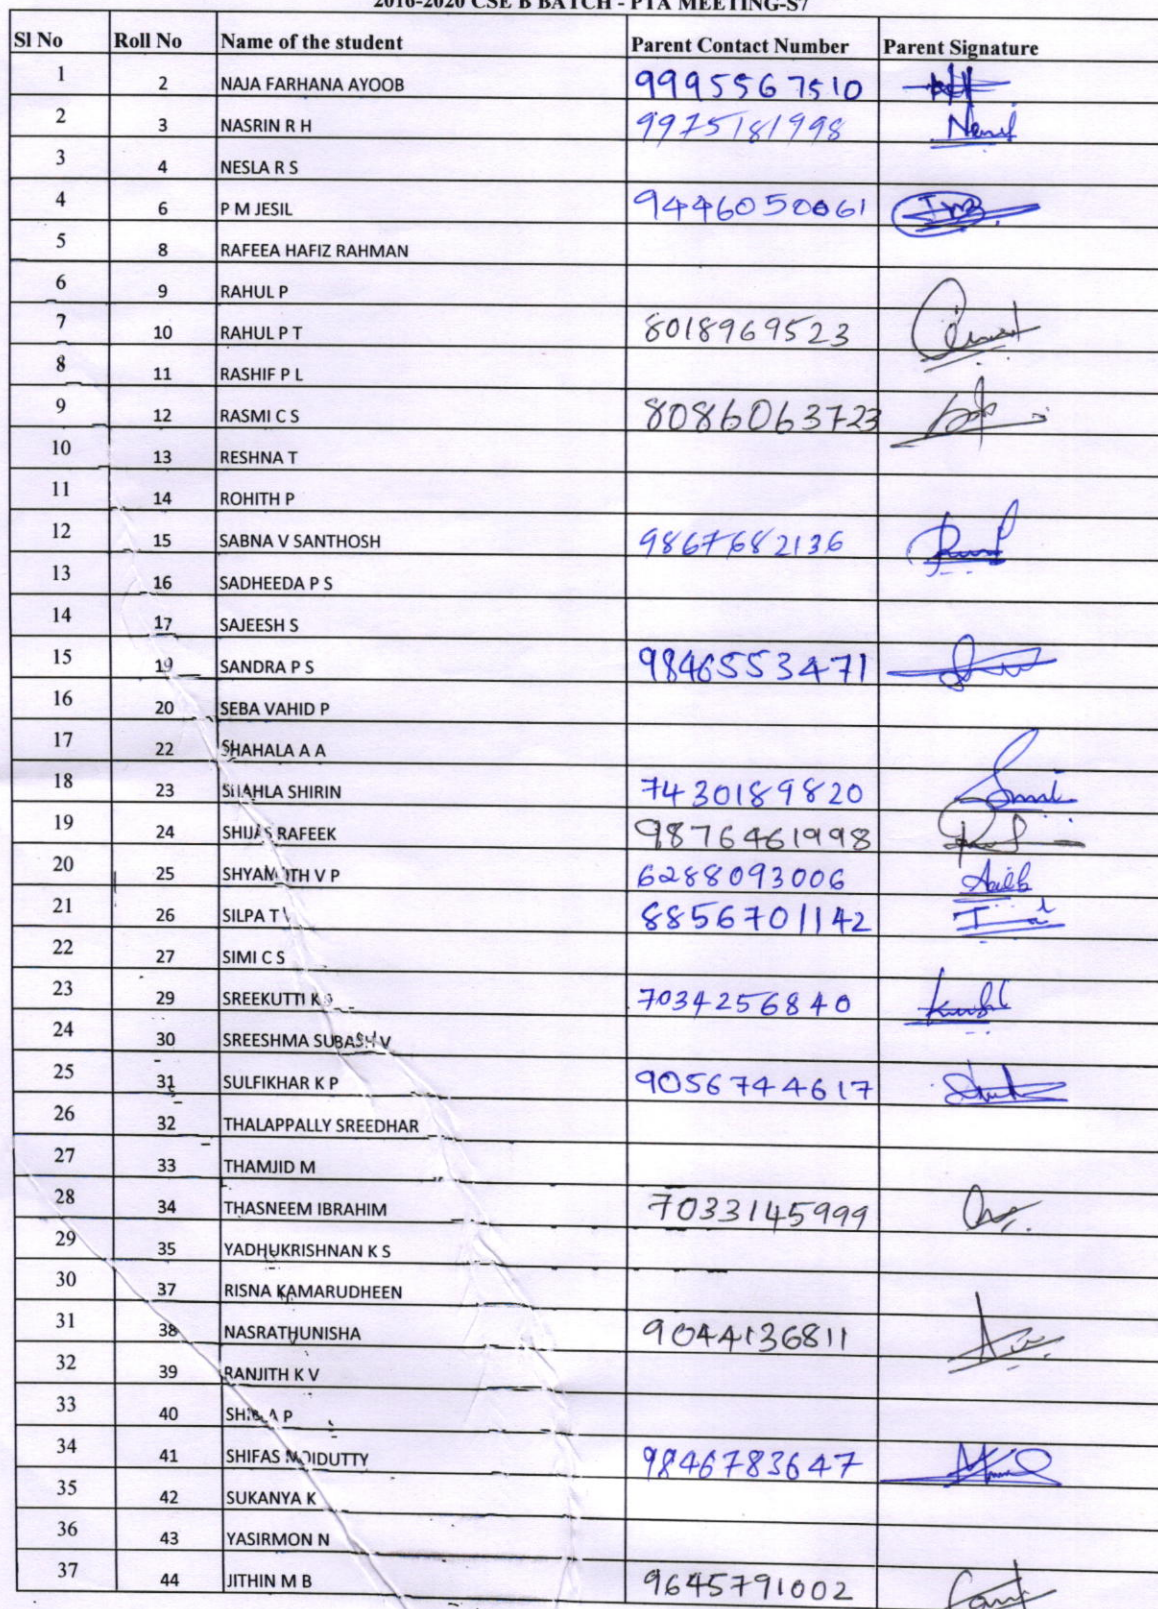 2016-2020 CSE B BATCH - PTA MEETING-S7
Sl No Roll No Name of the student Parent Contact Number Parent Signature
1 2 NAJA FARHANA AYOOB 9995567510
2 3 NASRIN R H 9975181998
3 4 NESLA R S
4 6 P M JESIL 9446050061
5 8 RAFEEA HAFIZ RAHMAN
6 9 RAHUL P
7 10 RAHUL P T 8018969523
8 11 RASHIF P L
9 12 RASMI C S 8086063723
10 13 RESHNA T
11 14 ROHITH P
12 15 SABNA V SANTHOSH 9867682136
13 16 SADHEEDA P S
14 17 SAJEESH S
15 19 SANDRA P S 9846553471
16 20 SEBA VAHID P
17 22 SHAHALA A A
18 23 SHAHLA SHIRIN 7430189820
19 24 SHIJAS RAFEEK 9876461998
20 25 V P 6288093006
21 26 SILPA T 8856701142
22 27 SIMI C S
23 29 SREEKUTTI K 7034256840
24 30 SREESHMA SUBASH V
25 31 SULFIKHAR K P 9056744617
26 32 THALAPPALLY SREEDHAR
27 33 THAMJID M
28 34 THASNEEM IBRAHIM 7033145999
29 35 YADHUKRISHNAN K S
30 37 RISNA KAMARUDHEEN
31 38 NASRATHUNISHA 9044136811
32 39 RANJITH K V
33 40 P
34 41 SHIFAS MOIDUTTY 9846783647
35 42 SUKANYA K
36 43 YASIRMON N
37 44 JITHIN M B 9645791002